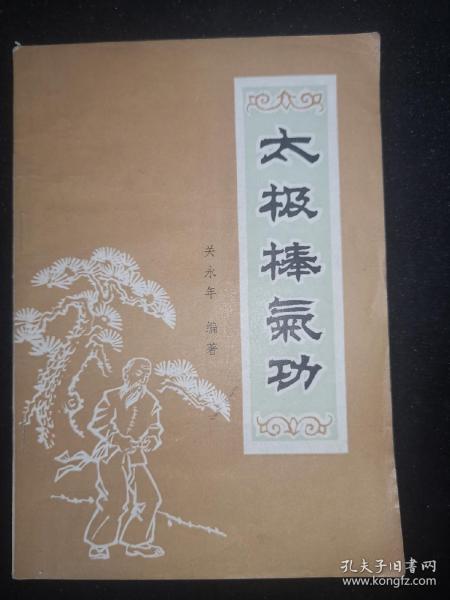 太极棒氣功
关永年 编著
孔夫子旧书网
www.kongfz.com